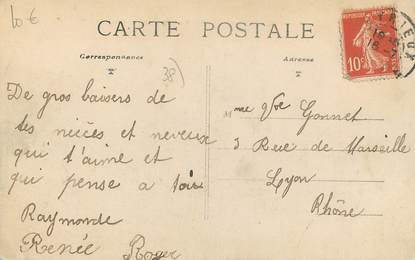 10 €
CARTE POSTALE
Correspondance
Adresse
38)
De gros baisers de
tes nièces et neveux
qui t'aime et
qui pense a toi
Raymonde
Renée Roger
Mme Vve Gonnet
3 Rue de Marseille
Lyon
Rhône
10c